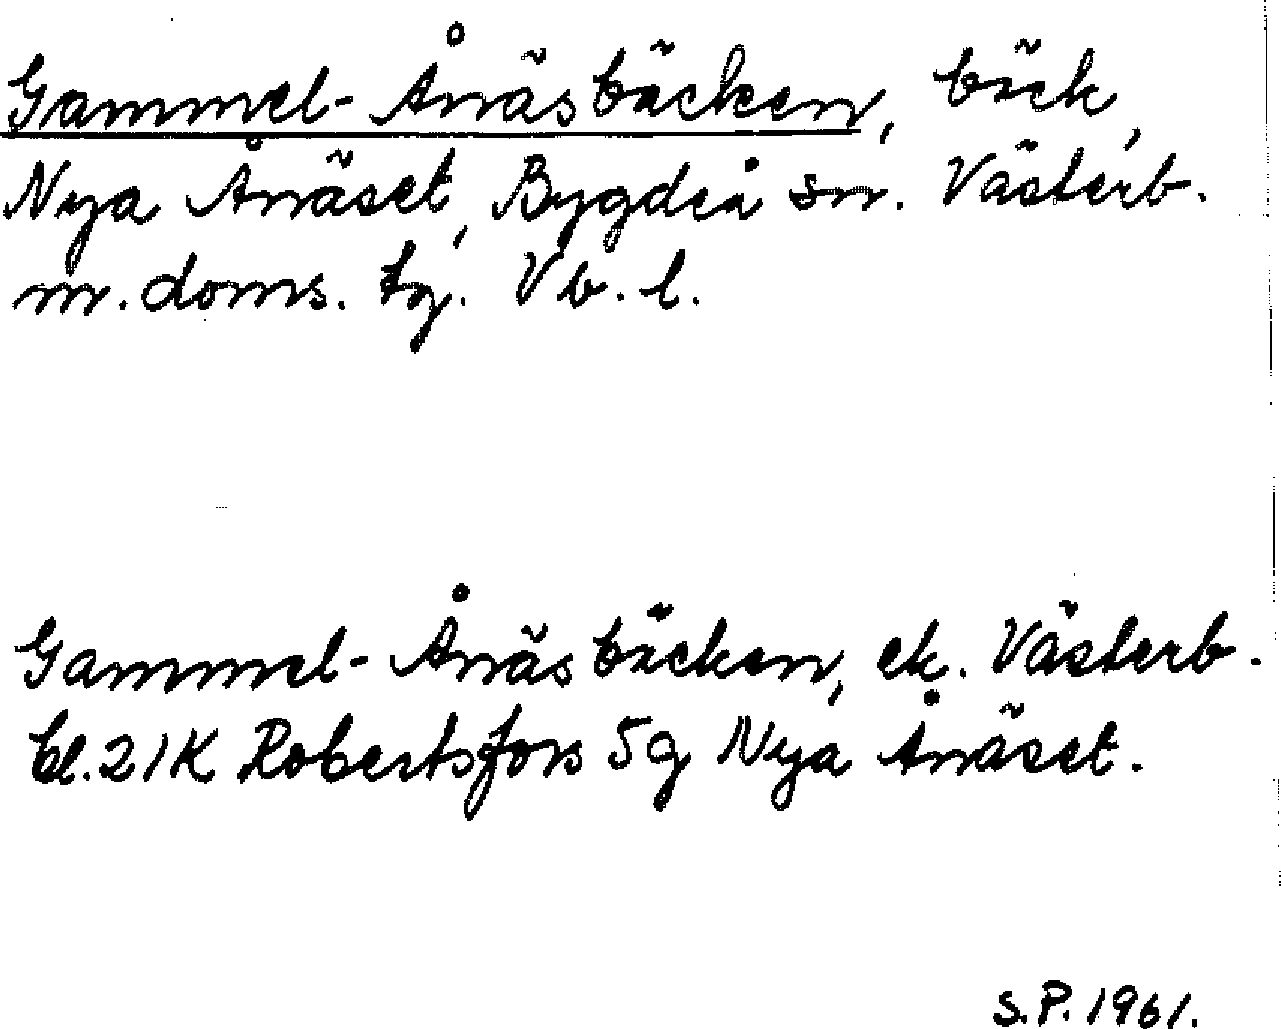 Gammel-Ånäsbäcken, bäck,
Nya Ånäset, Bygdeå sn. Västerb.
m. doms. tg. Vb. l.
Gammel-Ånäsbäcken, ek. Västerb.
bl. 21K Robertsfors 5g Nya Ånäset.
S.P. 1961.